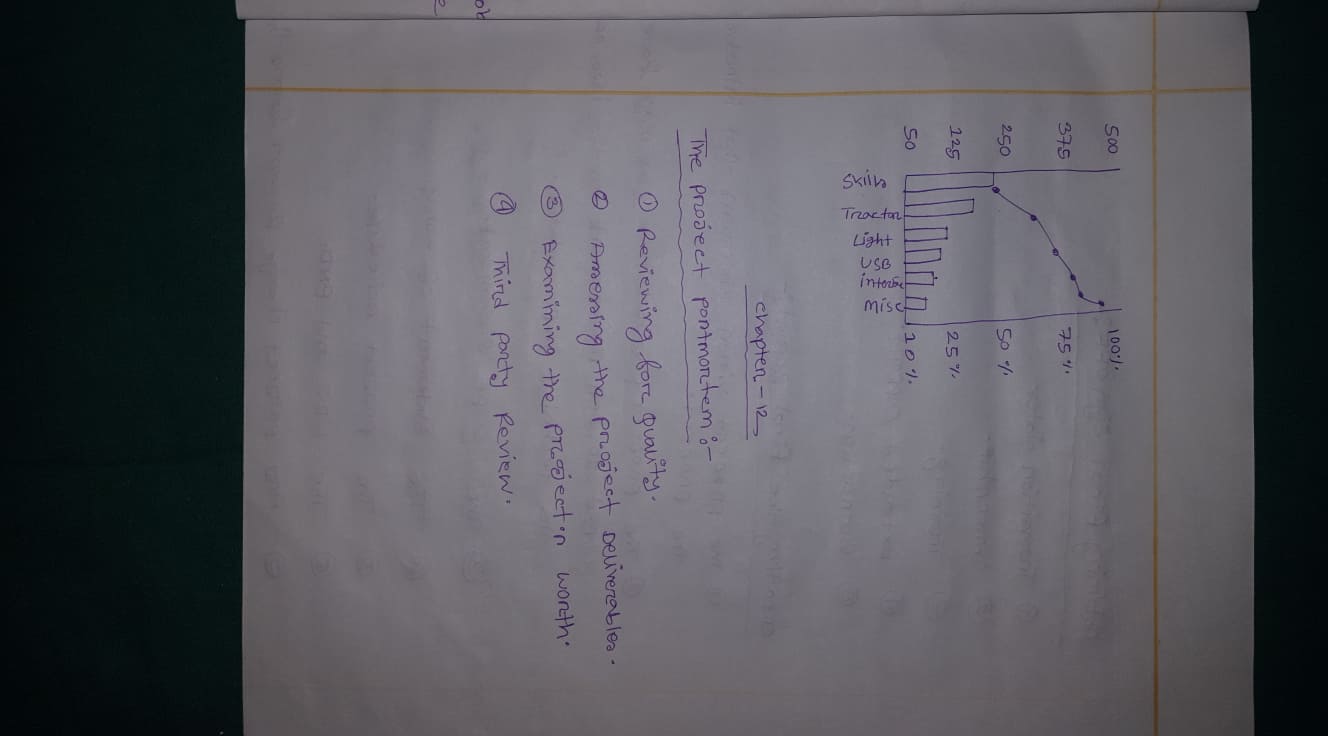 500 100%.
375 75%.
250 50%.
125 25%.
50 10%.
Skills
Tractor
Light
USB
Misc
Chapter - 12
The project postmortem :-
① Reviewing for quality.
② Assessing the project Deliverables.
③ Examining the project's worth.
④ Third party Review.